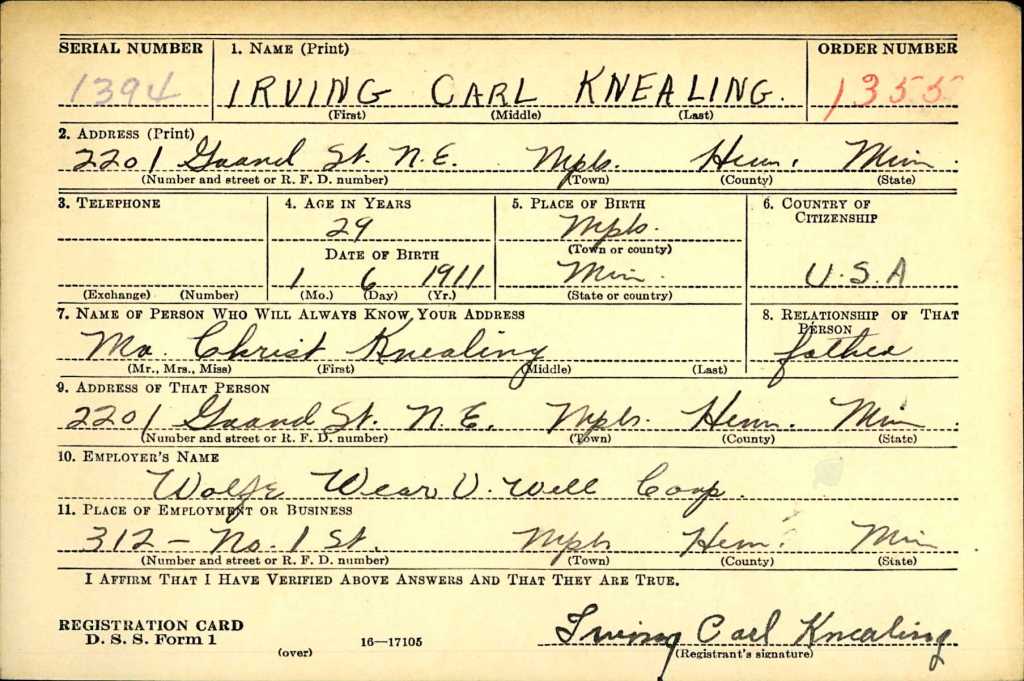 SERIAL NUMBER 1. NAME (Print) ORDER NUMBER
1394 IRVING CARL KNEALING. 1355
(First) (Middle) (Last)
2. ADDRESS (Print)
2201 Grand St. N.E. Mpls. Henn. Minn.
(Number and street or R. F. D. number) (Town) (County) (State)
3. TELEPHONE 4. AGE IN YEARS 5. PLACE OF BIRTH 6. COUNTRY OF CITIZENSHIP
29 Mpls.
(Town or county)
DATE OF BIRTH
1 6 1911 Minn. U.S.A
(Exchange) (Number) (Mo.) (Day) (Yr.) (State or country)
7. NAME OF PERSON WHO WILL ALWAYS KNOW YOUR ADDRESS 8. RELATIONSHIP OF THAT PERSON
Mr. Christ Knealing father
(Mr., Mrs., Miss) (First) (Middle) (Last)
9. ADDRESS OF THAT PERSON
2201 Grand St. N.E. Mpls. Henn. Minn.
(Number and street or R. F. D. number) (Town) (County) (State)
10. EMPLOYER'S NAME
Wolfe Wear U. Well Corp.
11. PLACE OF EMPLOYMENT OR BUSINESS
312 – No. 1 St. Mpls Henn. Minn
(Number and street or R. F. D. number) (Town) (County) (State)
I AFFIRM THAT I HAVE VERIFIED ABOVE ANSWERS AND THAT THEY ARE TRUE.
REGISTRATION CARD
D. S. S. Form 1 16—17105 Irving Carl Knealing
(over) (Registrant's signature)